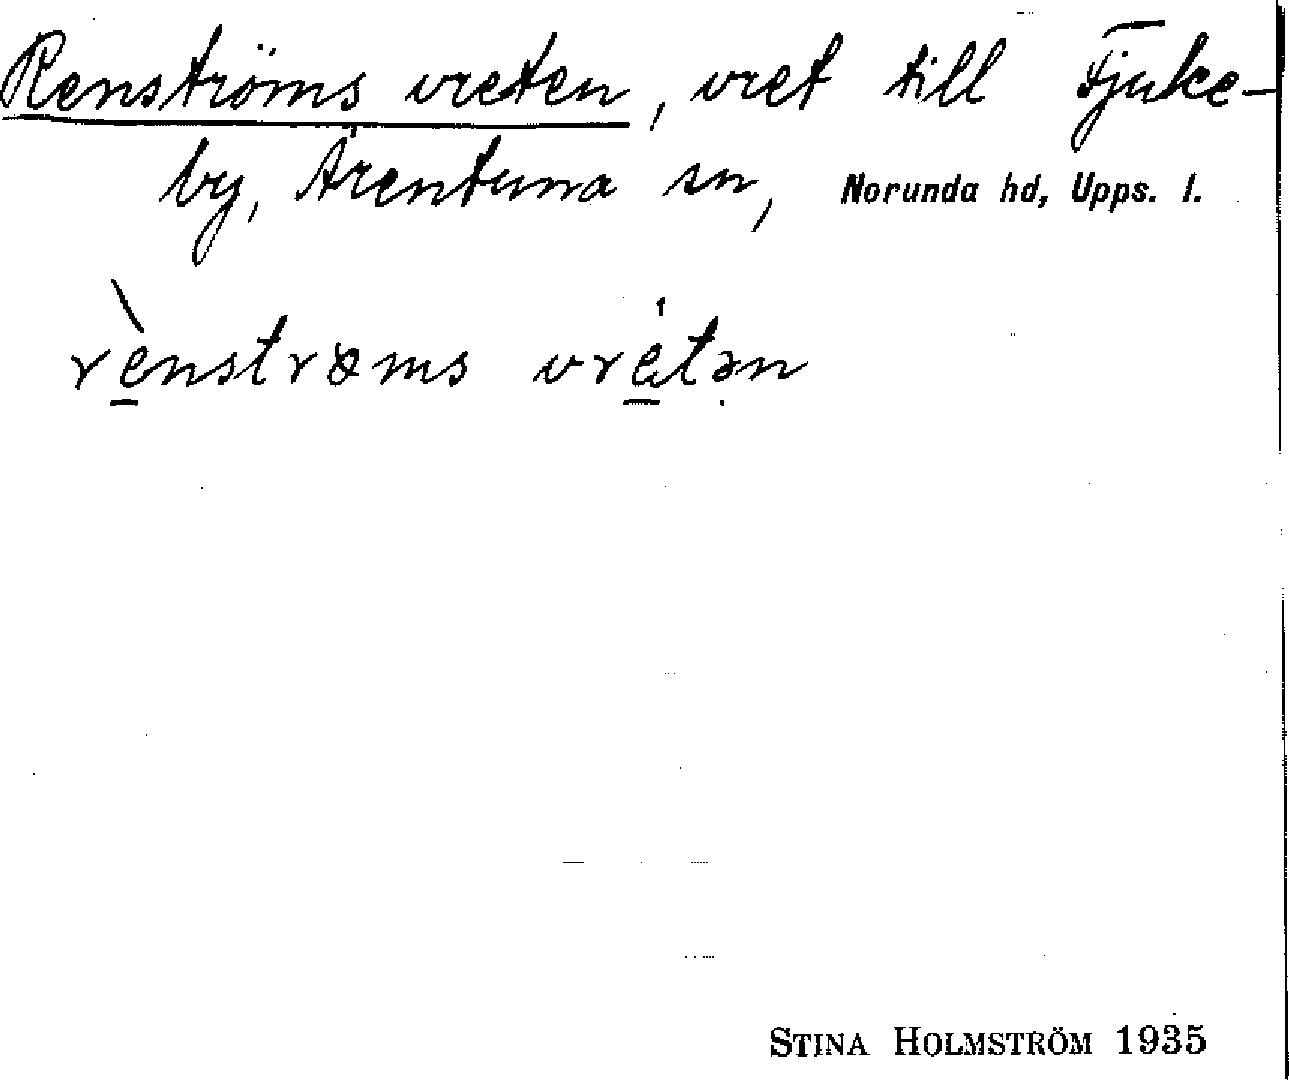 Renströms vreten, vret till Fjuke-
by, Ärentuna sn, Norunda hd, Upps. l.
rè̱nstrøms vré̱tən
STINA HOLMSTRÖM 1935